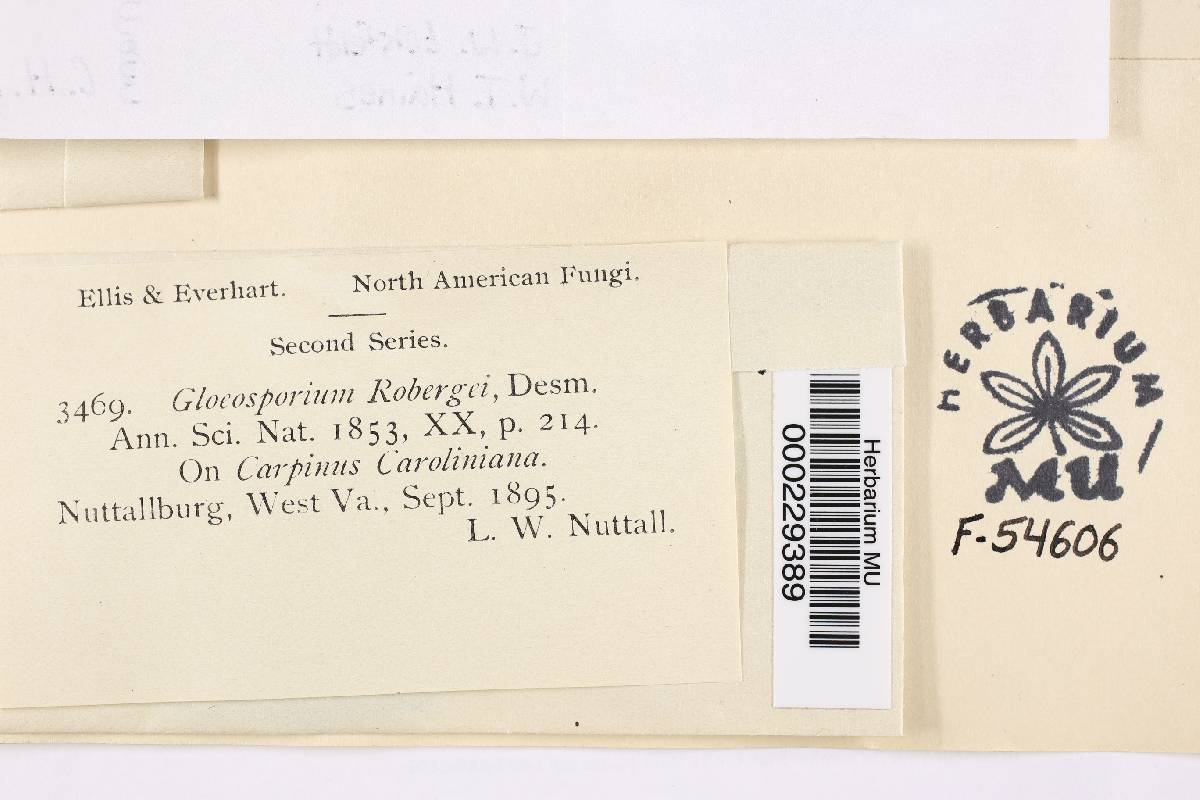 Ellis & Everhart. North American Fungi.
Second Series.
3469. Gloeosporium Robergei, Desm.
Ann. Sci. Nat. 1853, XX, p. 214.
On Carpinus Caroliniana.
Nuttallburg, West Va., Sept. 1895.
L. W. Nuttall.
Herbarium MU
000229389
HERBARIUM
MU
F-54606